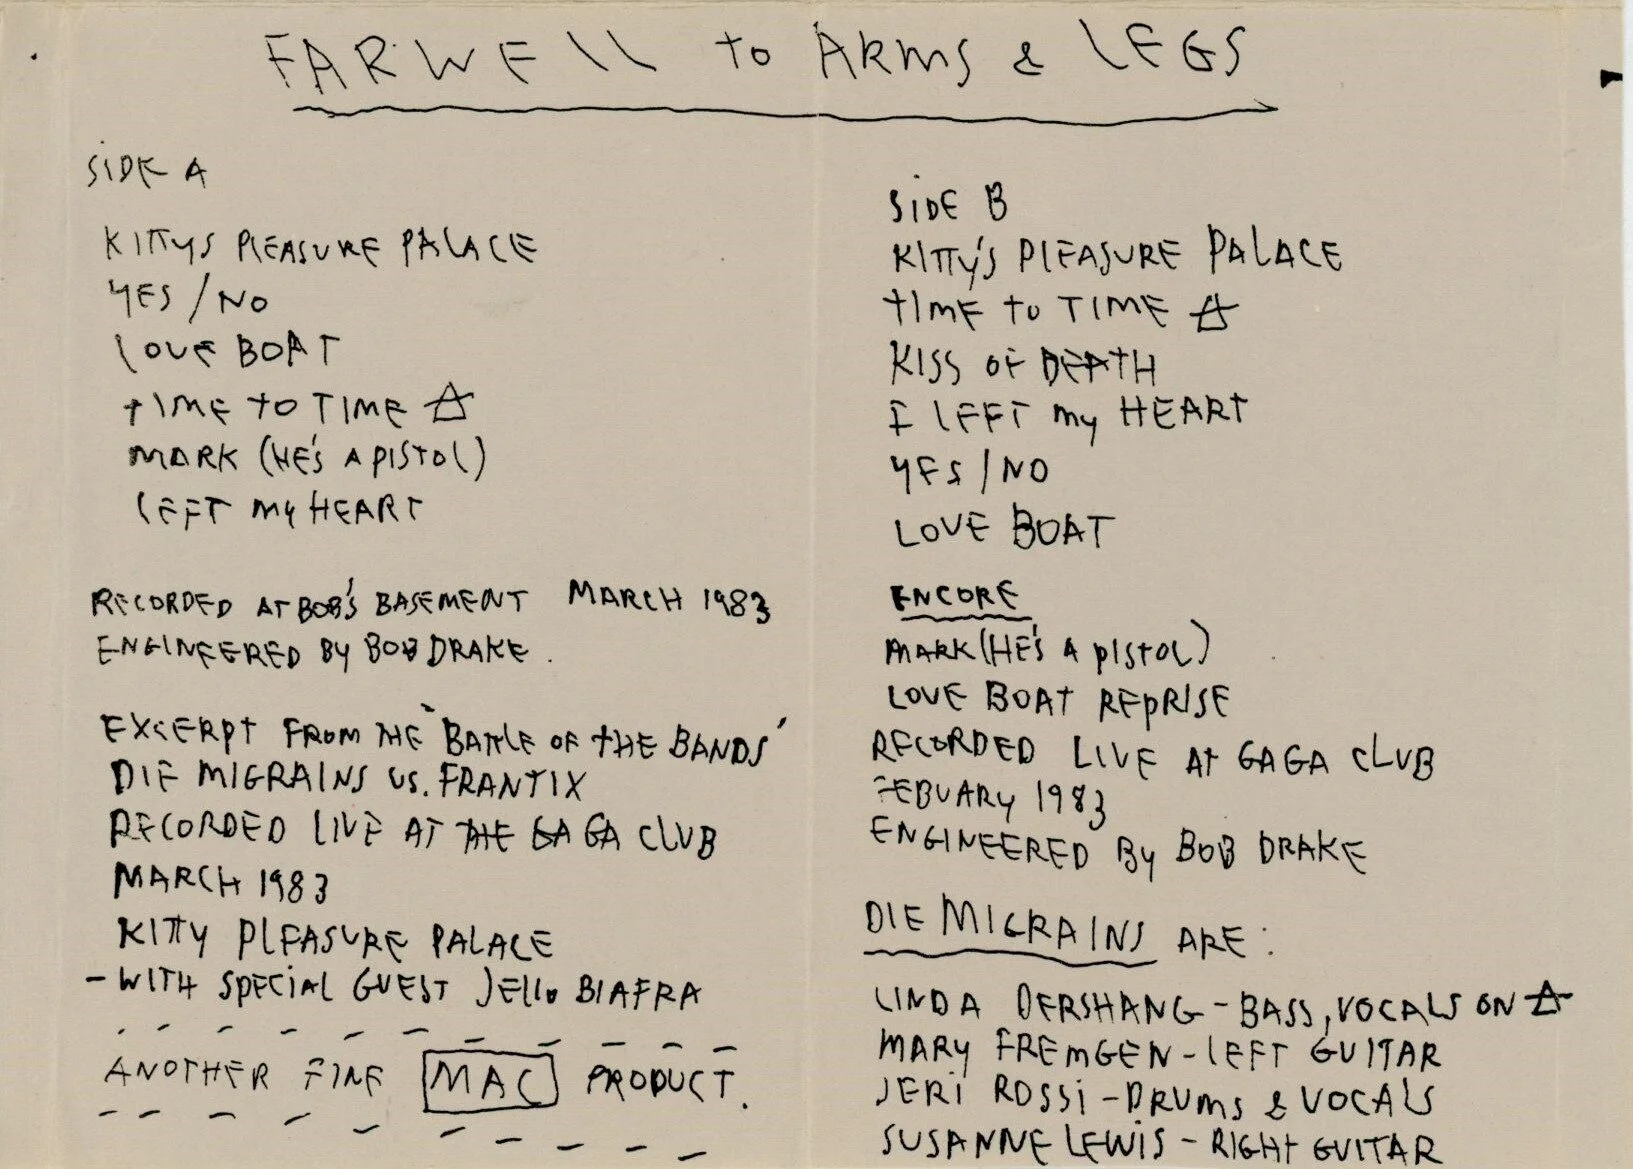 FARWELL to ARMS & LEGS
SIDE A
KITTYS PLEASURE PALACE
YES / NO
LOVE BOAT
TIME TO TIME ☆
MARK (HE'S A PISTOL)
LEFT MY HEART
RECORDED AT BOB'S BASEMENT MARCH 1983
ENGINEERED BY BOB DRAKE.
EXCERPT FROM THE "BATTLE OF THE BANDS'
DIE MIGRAINS VS. FRANTIX
RECORDED LIVE AT THE GA GA CLUB
MARCH 1983
KITTY PLEASURE PALACE
- WITH SPECIAL GUEST JELLO BIAFRA
ANOTHER FINE MAC PRODUCT.
SIDE B
KITTY'S PLEASURE PALACE
TIME TO TIME ☆
KISS OF DEATH
I LEFT MY HEART
YES / NO
LOVE BOAT
ENCORE
MARK (HE'S A PISTOL)
LOVE BOAT REPRISE
RECORDED LIVE AT GAGA CLUB
FEBUARY 1983
ENGINEERED BY BOB DRAKE
DIE MIGRAINS ARE:
LINDA DERSHANG - BASS, VOCALS ON ☆
MARY FREMGEN - LEFT GUITAR
JERI ROSSI - DRUMS & VOCALS
SUSANNE LEWIS - RIGHT GUITAR